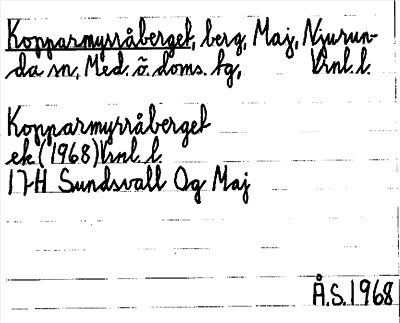 Kopparmyrråberget, berg, Maj, Njurun-
da sn, Med. ö. doms. tg, Vrnl. l.
Kopparmyrråberget
ek (1968) Vrnl. l.
17H Sundsvall Og Maj
Å.S. 1968